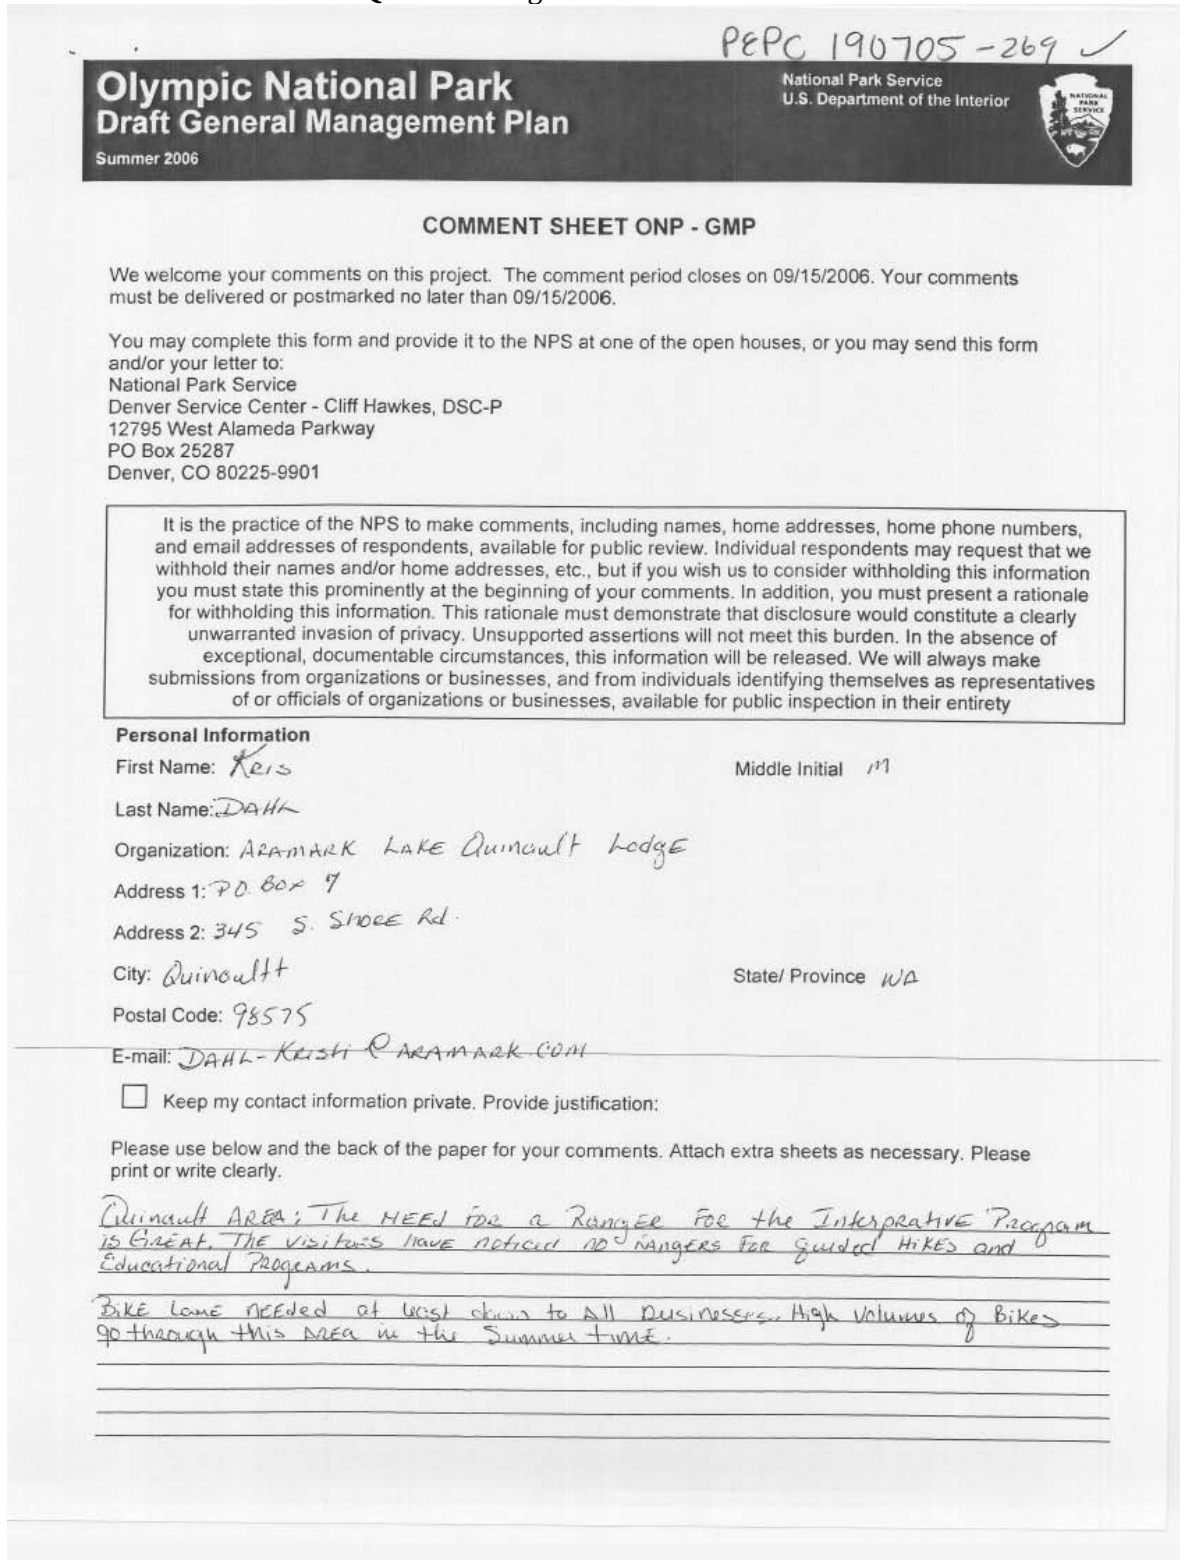 PEPC 190705-269 ✓
Olympic National Park
Draft General Management Plan
Summer 2006
National Park Service
U.S. Department of the Interior
NATIONAL
PARK
SERVICE
COMMENT SHEET ONP - GMP
We welcome your comments on this project. The comment period closes on 09/15/2006. Your comments
must be delivered or postmarked no later than 09/15/2006.
You may complete this form and provide it to the NPS at one of the open houses, or you may send this form
and/or your letter to:
National Park Service
Denver Service Center - Cliff Hawkes, DSC-P
12795 West Alameda Parkway
PO Box 25287
Denver, CO 80225-9901
It is the practice of the NPS to make comments, including names, home addresses, home phone numbers,
and email addresses of respondents, available for public review. Individual respondents may request that we
withhold their names and/or home addresses, etc., but if you wish us to consider withholding this information
you must state this prominently at the beginning of your comments. In addition, you must present a rationale
for withholding this information. This rationale must demonstrate that disclosure would constitute a clearly
unwarranted invasion of privacy. Unsupported assertions will not meet this burden. In the absence of
exceptional, documentable circumstances, this information will be released. We will always make
submissions from organizations or businesses, and from individuals identifying themselves as representatives
of or officials of organizations or businesses, available for public inspection in their entirety
Personal Information
First Name: Kris Middle Initial M
Last Name: DAHL
Organization: ARAMARK LAKE Quinault Lodge
Address 1: P.O. Box 7
Address 2: 345 S. Shore Rd.
City: Quinaultt State/ Province WA
Postal Code: 98575
E-mail: DAHL-Kristi @ ARAMARK.COM
Keep my contact information private. Provide justification:
Please use below and the back of the paper for your comments. Attach extra sheets as necessary. Please
print or write clearly.
Quinault AREA: The NEED FOR a Ranger For the Interprative Program
is GREAT. THE VISITORS HAVE noticed no RANGERS FOR guided HIKES and
Educational PROGRAMS.
BIKE LANE NEEded at least down to All Businesses. High Volumes of Bikes
go through this AREA in the Summer time.